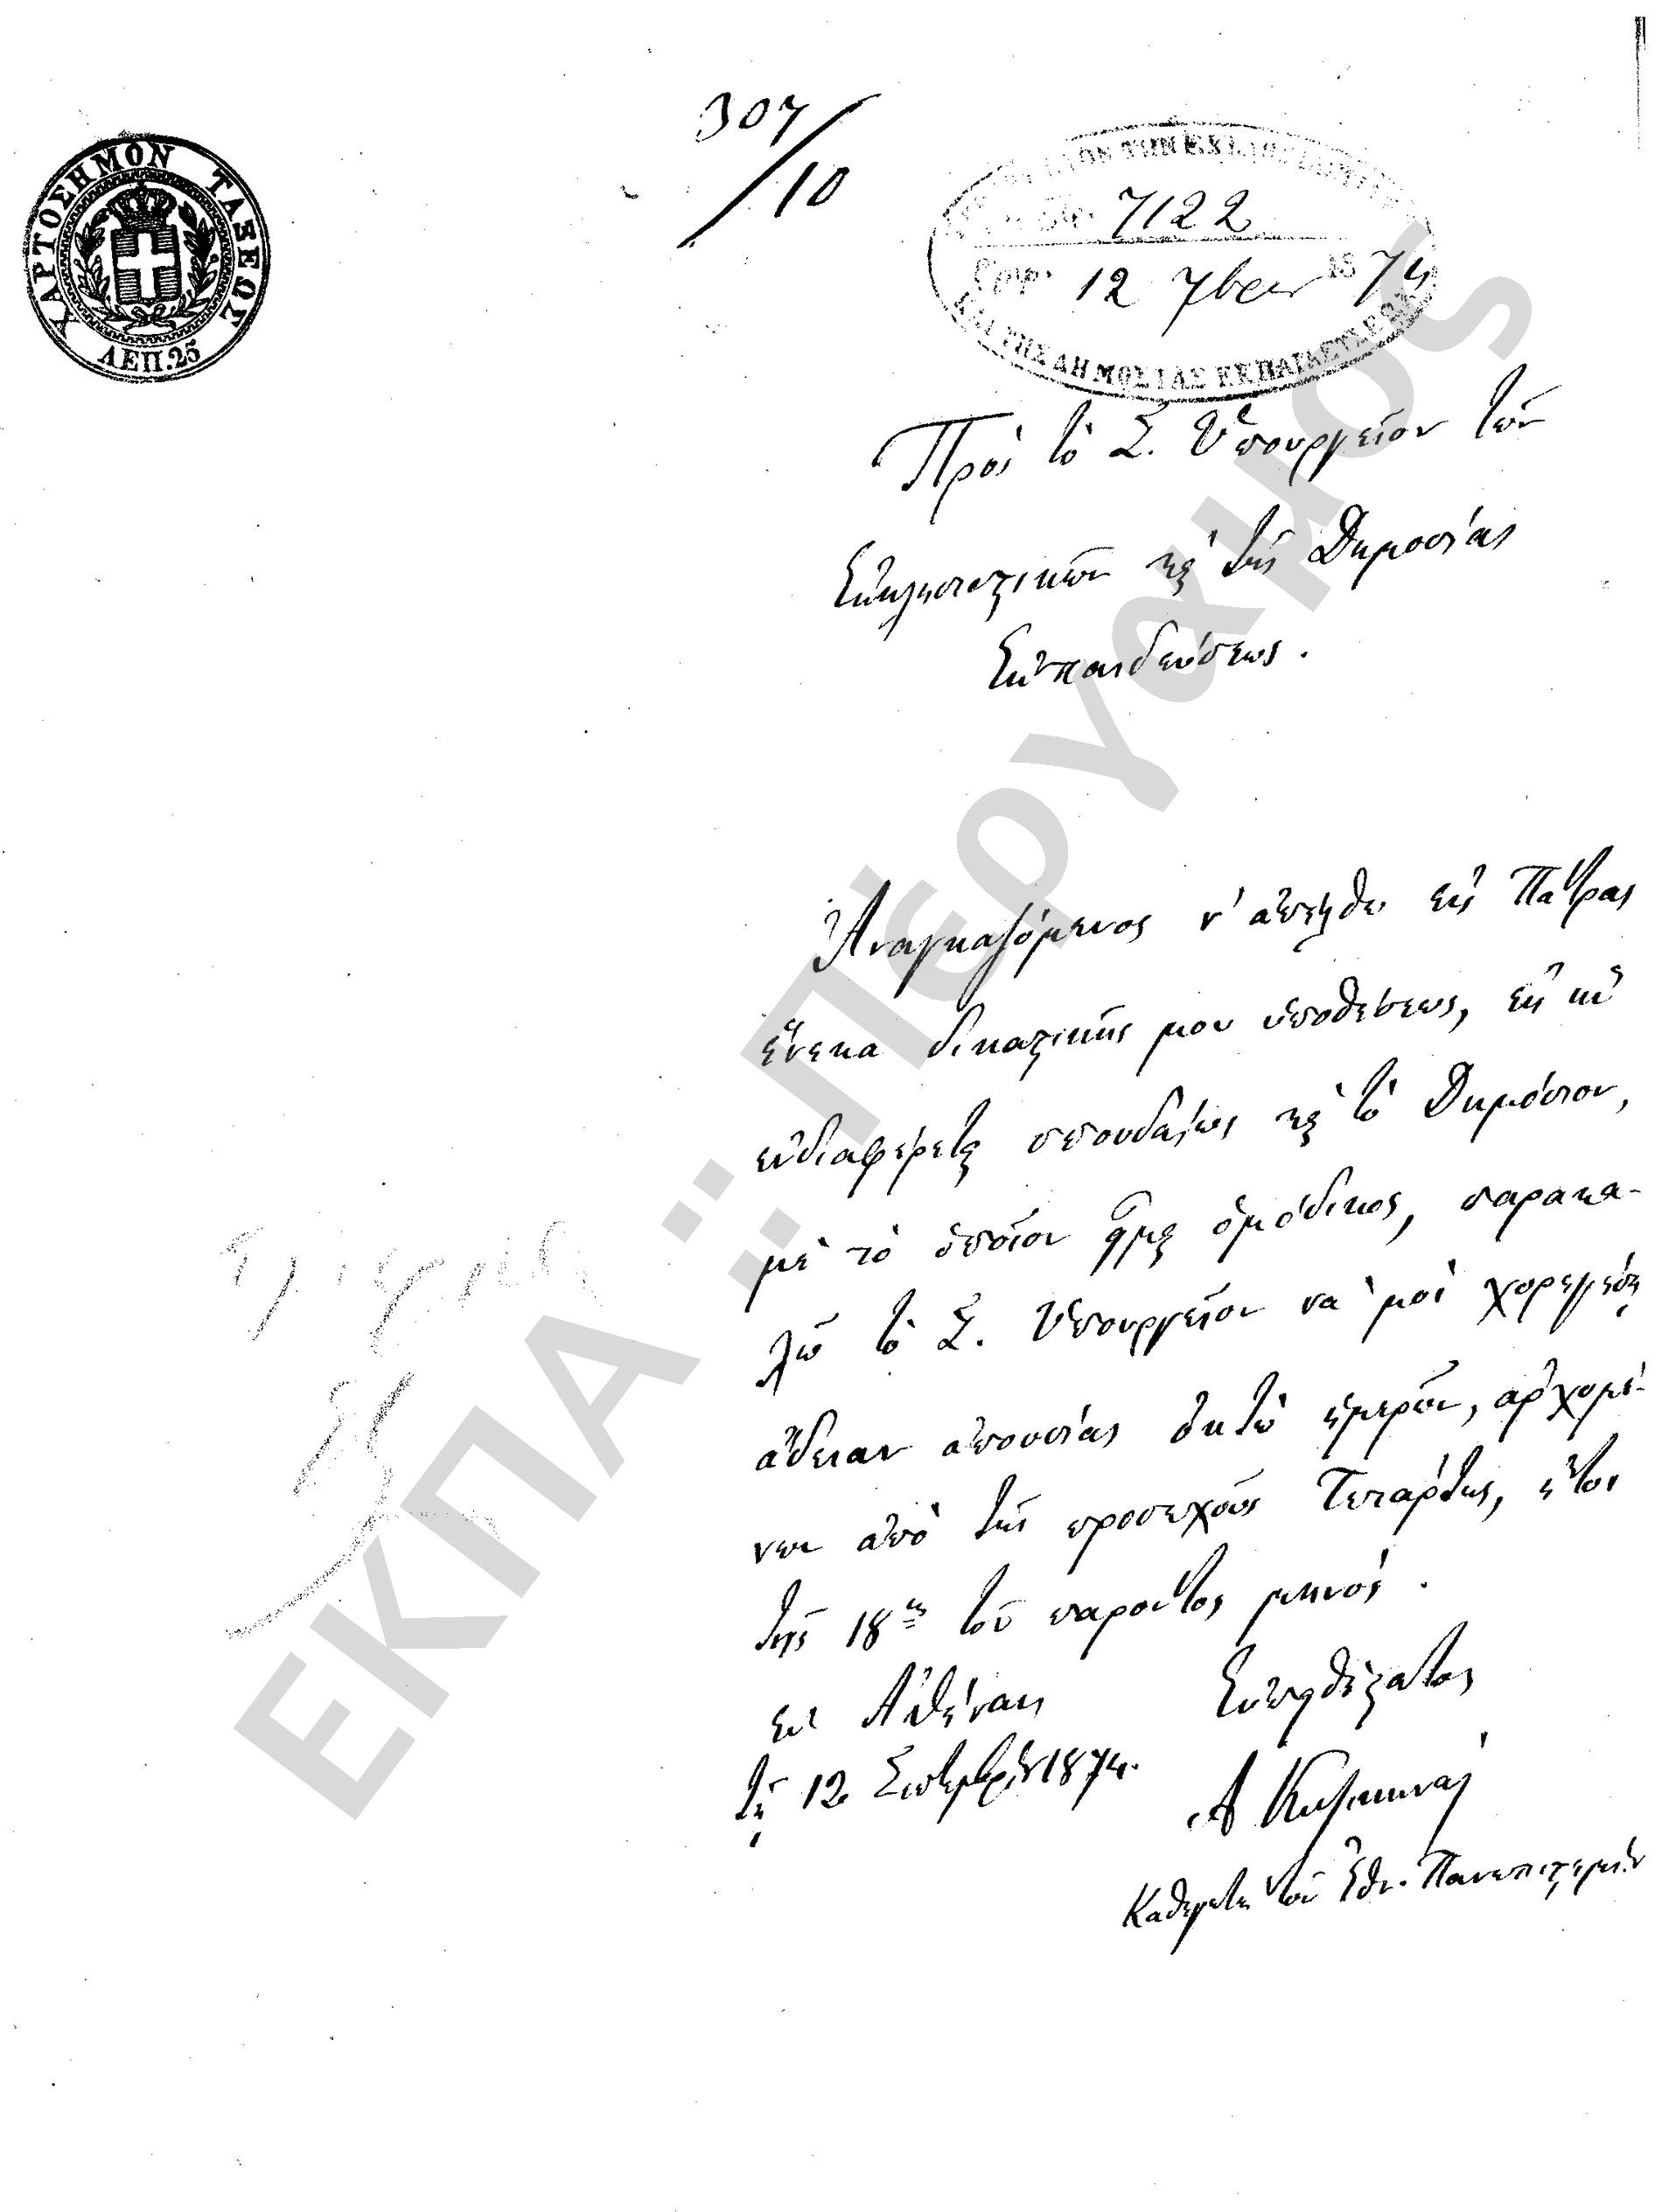 307/10
ΧΑΡΤΟΣΗΜΟΝ ΤΑΞΕΩΣ
ΛΕΠ. 25
7122
12 7βριου 1874
ΚΑΙ ΤΗΣ ΔΗΜΟΣΙΑΣ ΕΚΠΑΙΔΕΥΣΕΩΣ
Πρὸς τὸ Σ. Ὑπουργεῖον τῶν
Ἐκκλησιαστικῶν κὶ τῆς Δημοσίας
Ἐκπαιδεύσεως.
Ἀναγκαζόμενος ν' ἀπέλθω εἰς Πάτρας
ἕνεκα δικαστικῆς μου ὑποθέσεως, εἰς ἣν
ἐνδιαφέρεται σπουδαίως κὶ τὸ Δημόσιον,
μὲ τὸ ὁποῖον εἶμαι ὁμόδικος, παρακα-
λῶ τὸ Σ. Ὑπουργεῖον νὰ μοὶ χορηγήσῃ
ἄδειαν ἀπουσίας ὀκτὼ ἡμερῶν, ἀρχομέ-
νων ἀπὸ τῆς προσεχοῦς Τετάρτης, ἤτοι
τῆς 18ης τοῦ παρόντος μηνός.
Ἐν Ἀθήναις
τῇ 12 Σεπτεμβρίου 1874.
Εὐπειθέστατος
Α
Καθηγητὴς τοῦ Ἐθν. Πανεπιστημίου
ΕΚΠΑ Πέργαμος